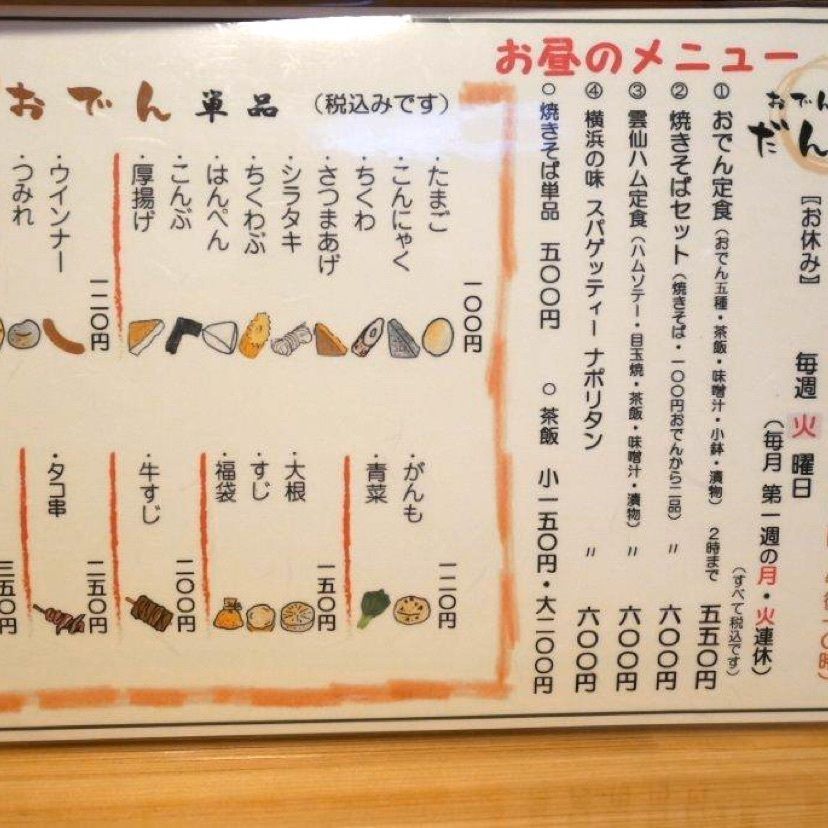 お昼のメニュー
おでん
だん
【お休み】 毎週 火 曜日
(毎月 第一週の月・火連休)
(すべて税込です)
① おでん定食 (おでん五種・茶飯・味噌汁・小鉢・漬物) 2時まで 五五〇円
② 焼きそばセット (焼きそば・一〇〇円おでんから二品) 〃 六〇〇円
③ 雲仙ハム定食 (ハムソテー・目玉焼・茶飯・味噌汁・漬物) 〃 六〇〇円
④ 横浜の味 スパゲッティー ナポリタン 〃 六〇〇円
○ 焼きそば単品 五〇〇円 ○ 茶飯 小一五〇円・大二〇〇円
おでん 単品 (税込みです)
一〇〇円
・たまご
・こんにゃく
・ちくわ
・さつまあげ
・シラタキ
・ちくわぶ
・はんぺん
・こんぶ
・厚揚げ
一一〇円
・ウインナー
・つみれ
一二〇円
・がんも
・青菜
一五〇円
・大根
・すじ
・福袋
二〇〇円
・牛すじ
二五〇円
・タコ串
三五〇円